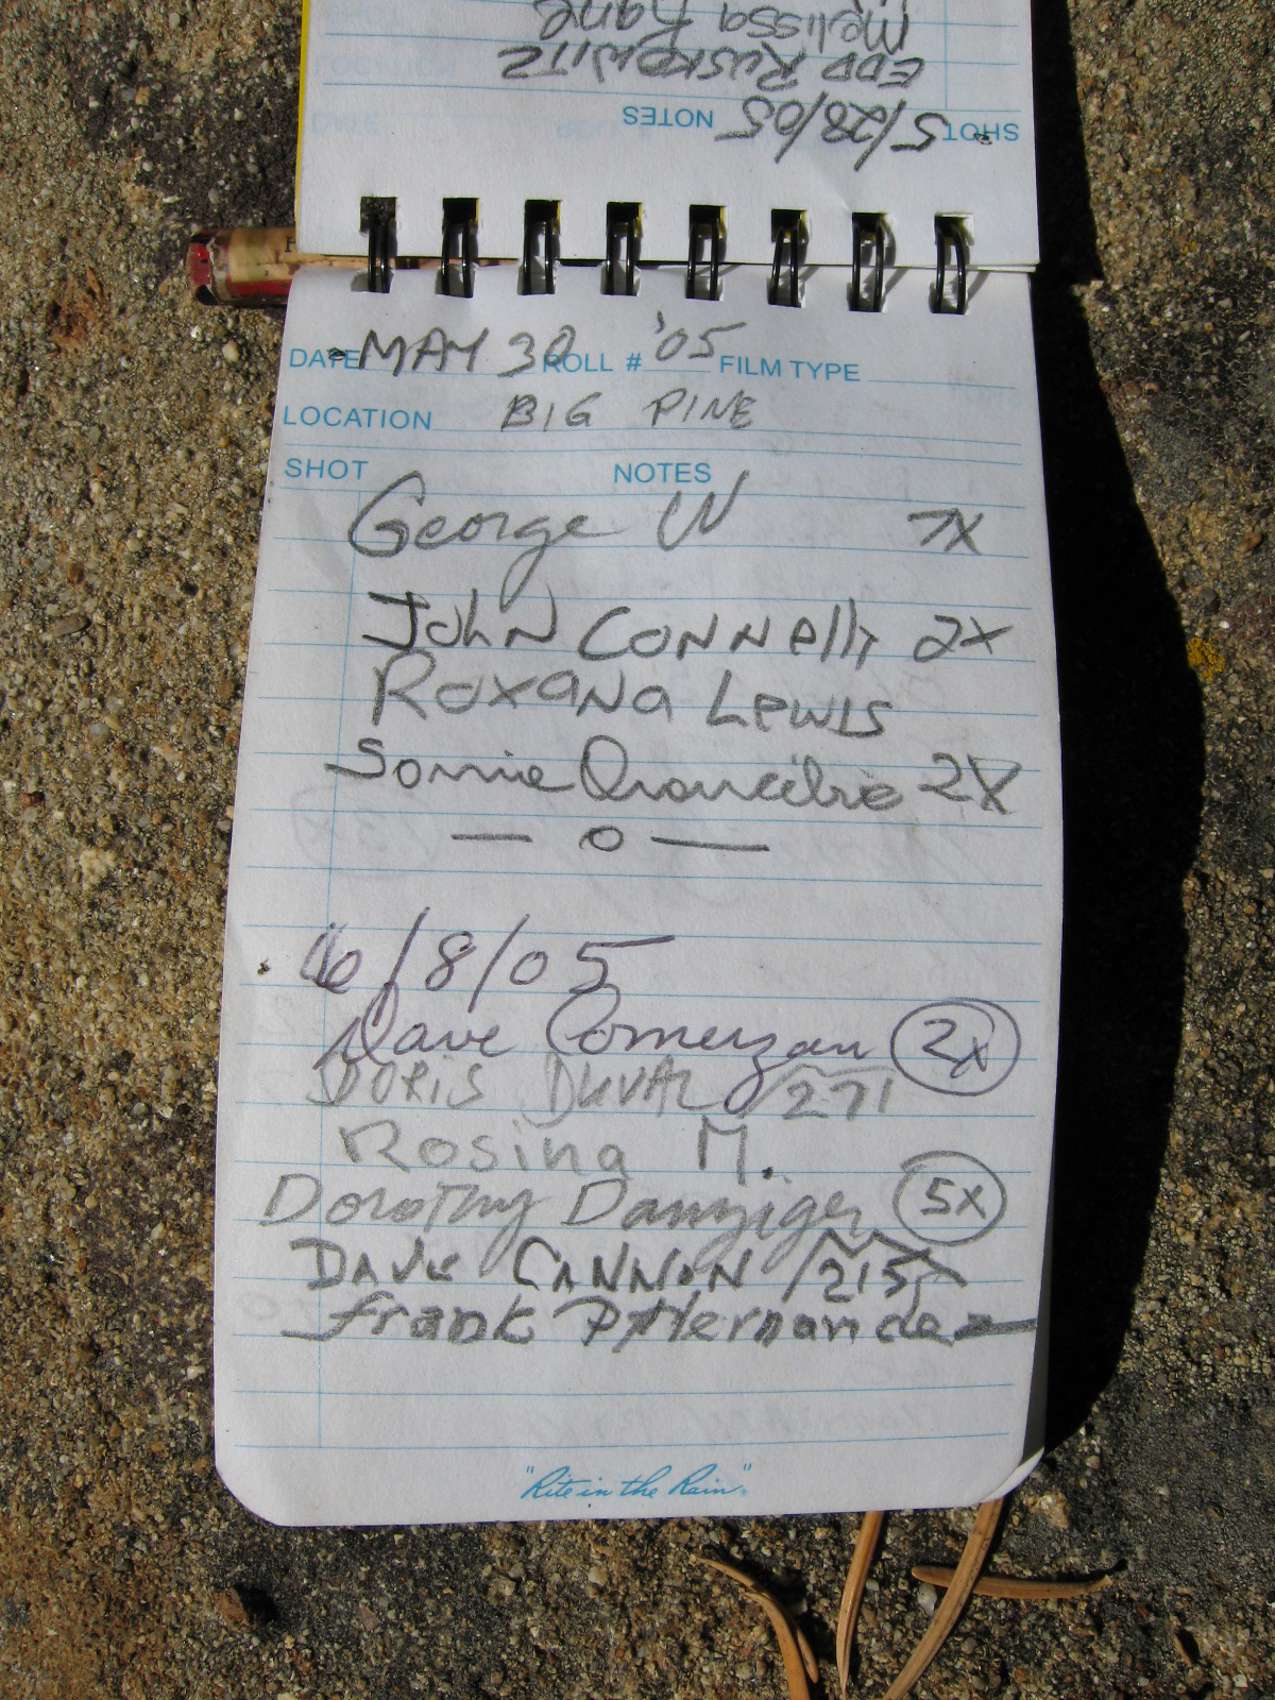 Melissa Kane
EDD RUSKOWITZ
SHOT 5/28/05 NOTES
DATE MAY 30 ROLL # '05 FILM TYPE
LOCATION BIG PINE
SHOT NOTES
George W 7X
JOHN CONNElly 2X
ROXANA LEWIS
Sonnie 2X
— o —
6/8/05
Dave Comerzan 2X
DORIS DUVAL /271
Rosina M.
Dorothy Danziger 5X
DAVE CANNON /215
frank P Hernandez
"Rite in the Rain"